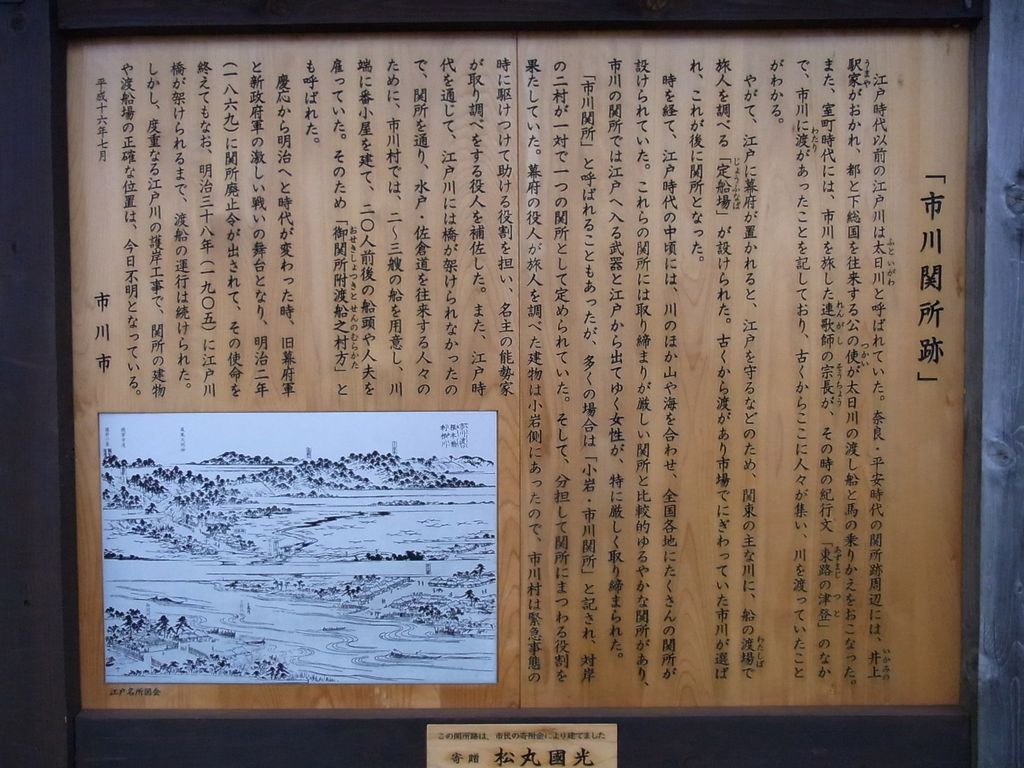 「市川関所跡」
江戸時代以前の江戸川は太日川と呼ばれていた。奈良・平安時代の関所跡周辺には、井上
駅家がおかれ、都と下総国を往来する公の使が太日川の渡し船と馬の乗りかえをおこなった。
また、室町時代には、市川を旅した連歌師の宗長が、その時の紀行文「東路の津登」のなか
で、市川に渡があったことを記しており、古くからここに人々が集い、川を渡っていたこと
がわかる。
やがて、江戸に幕府が置かれると、江戸を守るなどのため、関東の主な川に、船の渡場で
旅人を調べる「定船場」が設けられた。古くから渡があり市場でにぎわっていた市川が選ば
れ、これが後に関所となった。
時を経て、江戸時代の中頃には、川のほか山や海を合わせ、全国各地にたくさんの関所が
設けられていた。これらの関所には取り締まりが厳しい関所と比較的ゆるやかな関所があり、
市川の関所では江戸へ入る武器と江戸から出てゆく女性が、特に厳しく取り締まられた。
「市川関所」と呼ばれることもあったが、多くの場合は「小岩・市川関所」と記され、対岸
の二村が一対で一つの関所として定められていた。そして、分担して関所にまつわる役割を
果たしていた。幕府の役人が旅人を調べた建物は小岩側にあったので、市川村は緊急事態の
時に駆けつけて助ける役割を担い、名主の能勢家
が取り調べをする役人を補佐した。また、江戸時
代を通じて、江戸川には橋が架けられなかったの
で、関所を通り、水戸・佐倉道を往来する人々の
ために、市川村では、二〜三艘の船を用意し、川
端に番小屋を建て、二〇人前後の船頭や人夫を
雇っていた。そのため「御関所附渡船之村方」と
も呼ばれた。
慶応から明治へと時代が変わった時、旧幕府軍
と新政府軍の激しい戦いの舞台となり、明治二年
(一八六九)に関所廃止令が出されて、その使命を
終えてもなお、明治三十八年(一九〇五)に江戸川
橋が架けられるまで、渡船の運行は続けられた。
しかし、度重なる江戸川の護岸工事で、関所の建物
や渡船場の正確な位置は、今日不明となっている。
平成十六年七月
市川市
江戸名所図会
この関所跡は、市民の寄附金により建てました
寄贈 松丸國光